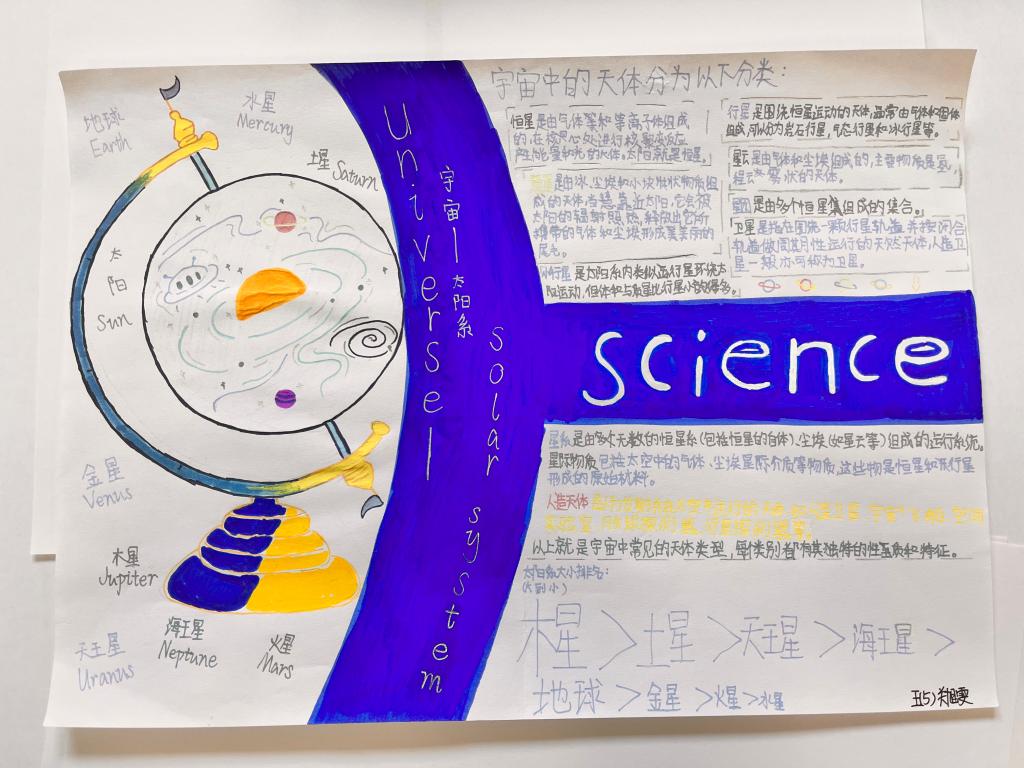 地球
Earth
水星
Mercury
土星 Saturn
太
阳
Sun
金星
Venus
木星
Jupiter
天王星
Uranus
海王星
Neptune
火星
Mars
universel
宇宙
太阳系
solar system
宇宙中的天体分为以下分类：
恒星是由气体
的，在核心处进行核聚变反应
产生能量和光的天体。太阳就是恒星。
是由冰、尘埃和小块状物质组
成的天体，当其靠近太阳，它会被
太阳的辐射照热，释放出它所
携带的气体和尘埃形成美丽的
尾巴。
小行星是太阳系内类似行星环绕太
阳运动，但体积与质量比行星小的
行星是围绕恒星运动的天体，通常由气体和固体
组成，可以分为岩石行星，气态行星和冰行星等。
星云是由气体和尘埃组成的，主要物质是氢，
程云雾状的天体。
是由多个恒星集组成的集合。
卫星是指在围绕一颗行星轨道并按闭合
轨道做周期性运行的天然天体，人造卫
星一般亦可称为卫星。
science
星系是由多个无数的恒星系(包括恒星的自体)、尘埃(如星云等)组成的运行系统。
星际物质包括太空中的气体、尘埃星际介质等物质，这些物是恒星和行星
形成的原始材料。
人造天体
以上就是宇宙中常见的天体类型，每类别者都有其独特的性质和特征。
太阳系大小排名：
(大到小)
木星>土星>天王星>海王星>
地球>金星>火星>水星
五(5)